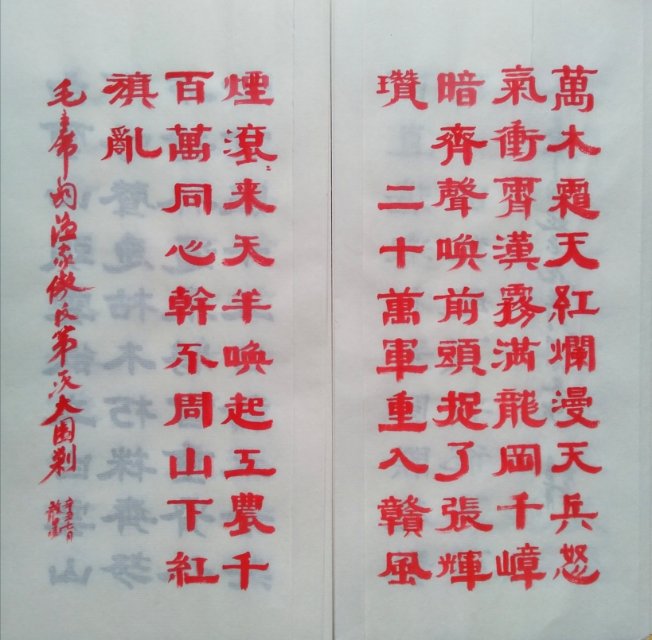 萬木霜天紅爛漫天兵怒
氣衝霄漢霧滿龍岡千嶂
暗齊聲喚前頭捉了張輝
瓚 二十萬軍重入贛風
煙滾〻来天半喚起工農千
百萬同心幹不周山下紅
旗亂
毛主席词渔家傲反第一次大围剿